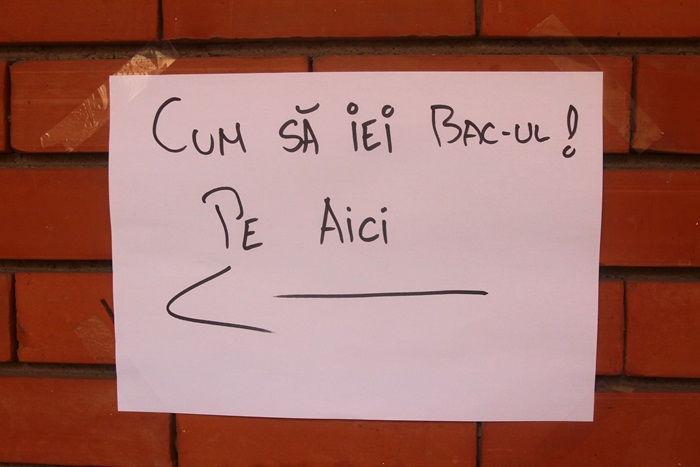 CUM SĂ iEi BAC-UL!
PE AiCi